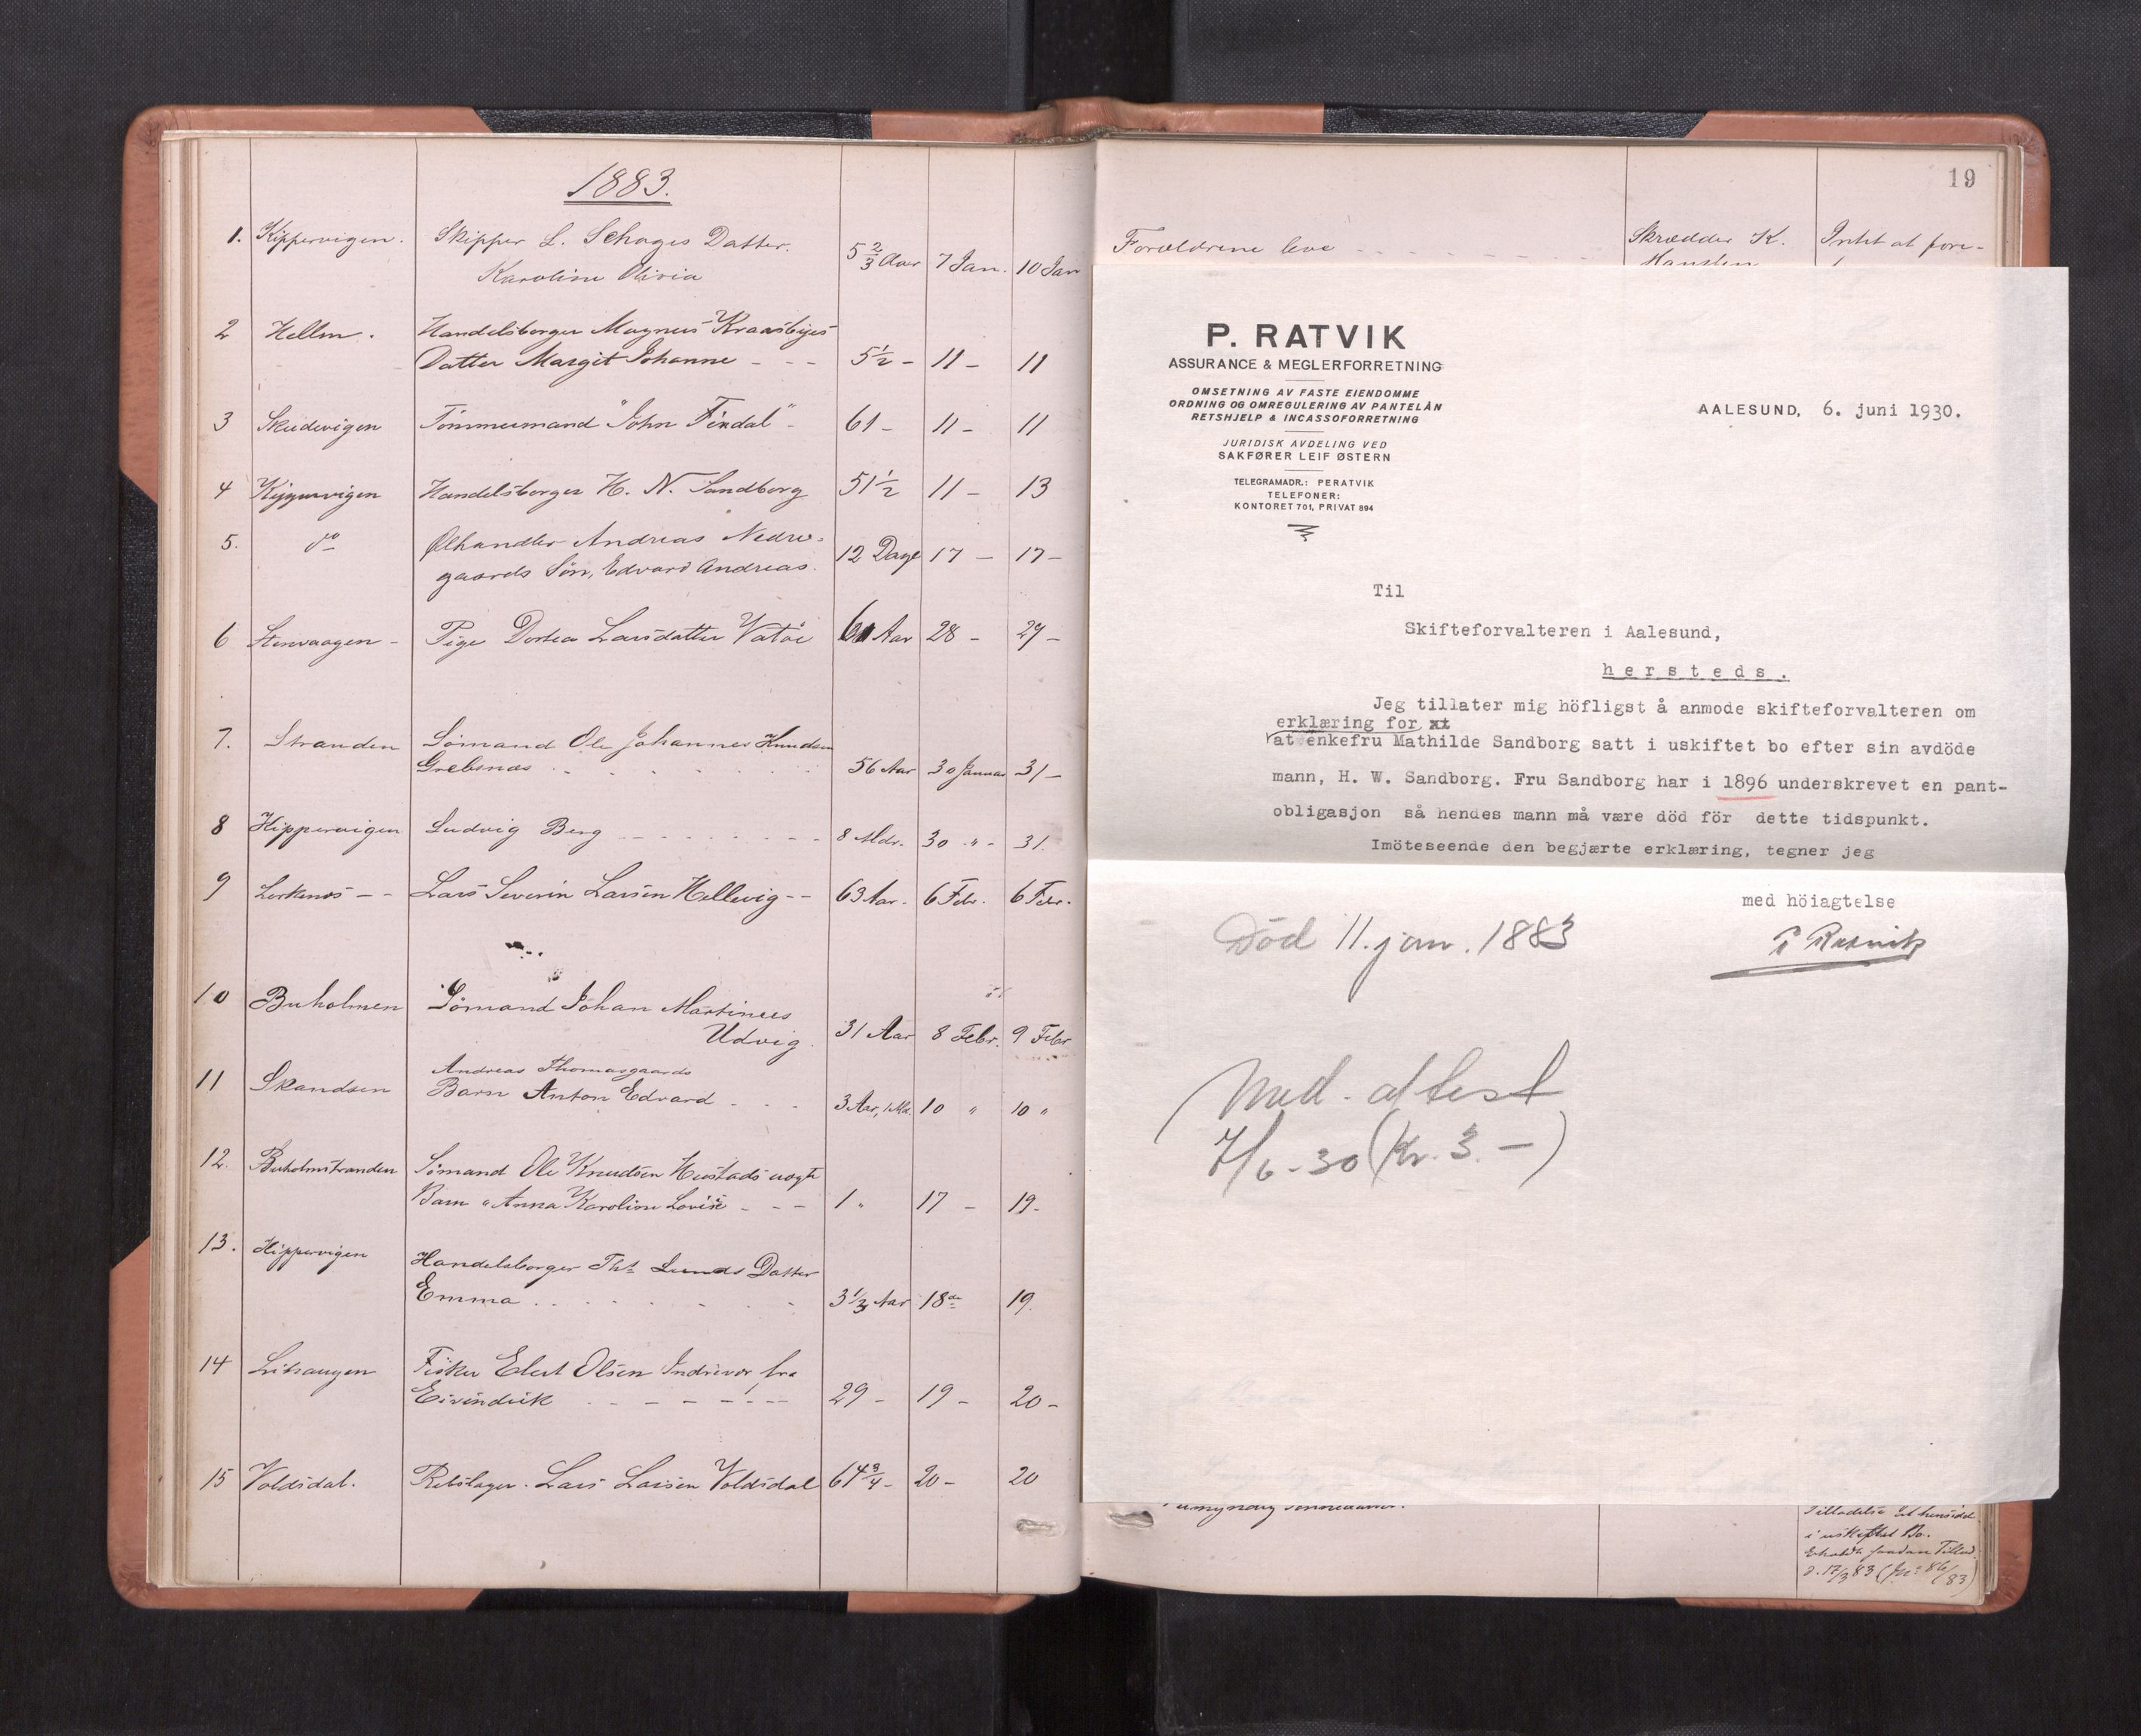 1883.
1. Kippervigen. Skipper L. Schages Datter. 5 2/3 Aar 7 Jan. 10 Jan
Karoline Olivia
2 Hellen. Handelsborger Magnus Kraasbyes
Datter Margit Johanne - - - 5½ - 11 - 11
3 Skudevigen Tömmermand "John Findal" - 61 - 11 - 11
4 Kippervigen Handelsborger H. N. Sandborg 51½ 11 - 13
5. do Ølhandler Andreas Nedre-
gaards Sön, Edvard Andreas. 12 Dage 17 - 17 -
6 Stenvaagen - Pige Dortea Larsdatter Vatöe 61 Aar 28 - 29 -
7. Stranden Sömand Ole Johannes Knudsen
Grebsnæs 56 Aar 30 Januar 31 -
8 Kippervigen Ludvig Berg - - - 8 Mdr. 30 " - 31.
9 Lerkenæs - - Lars Severin Larsen Hellevig - - 63 Aar. 6 Febr. 6 Febr.
10 Buholmen Sömand Johan Martinus
Udvig. 31 Aar 8 Febr. 9 Febr
11 Skandsen Andreas Thomasgaards
Barn Anton Edvard - - - 3 Aar, 1 Md. 10 " 10 "
12. Buholmstranden Sömand Ole Knudsen Hustads uægte
Barn "Anna Karoline Lovise - - - 1 " 17 - 19 -
13. Kippervigen Handelsborger Ths Lunds Datter
Emma 3⅓ Aar 18de 19.
14 Fisker Elert Olsen Indrevær fra
Eivindvik 29 - 19 - 20 -
15 Voldsdal. Rebslager. Lars Larsen Voldsdal 64¾ - 20 - 20
19
Forældrene leve - - - Skrædder K. Intet at fore-
Hansen
P. RATVIK
ASSURANCE & MEGLERFORRETNING
OMSETNING AV FASTE EIENDOMME
ORDNING OG OMREGULERING AV PANTELÅN
RETSHJELP & INCASSOFORRETNING
JURIDISK AVDELING VED
SAKFØRER LEIF ØSTERN
TELEGRAMADR.: PERATVIK
TELEFONER:
KONTORET 701, PRIVAT 894
AALESUND, 6. juni 1930.
Til
Skifteforvalteren i Aalesund,
hersteds.
Jeg tillater mig höfligst å anmode skifteforvalteren om
erklæring for xt
at enkefru Mathilde Sandborg satt i uskiftet bo efter sin avdöde
mann, H. W. Sandborg. Fru Sandborg har i 1896 underskrevet en pant-
obligasjon så hendes mann må være död för dette tidspunkt.
Imöteseende den begjærte erklæring, tegner jeg
med höiagtelse
P Ratvik
Död 11. jan. 1883
Med. attest
7/6-30 (Kr. 3.-)
umyndig
Tilladelse til hensidd
i uskiftet Bo.
Erholdt saadan Tillad.
d. 17/3 83 (Jn: 86/83)